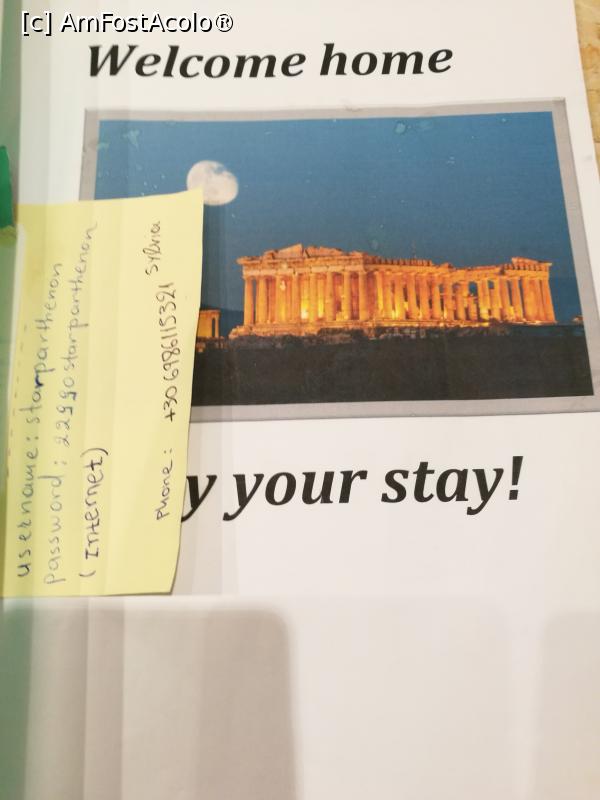 [c] AmFostAcolo®
Welcome home
username: starparthenon
Password: 22990starparthenon
(Internet)
Phone: +306986115321 Sylvia
y your stay!